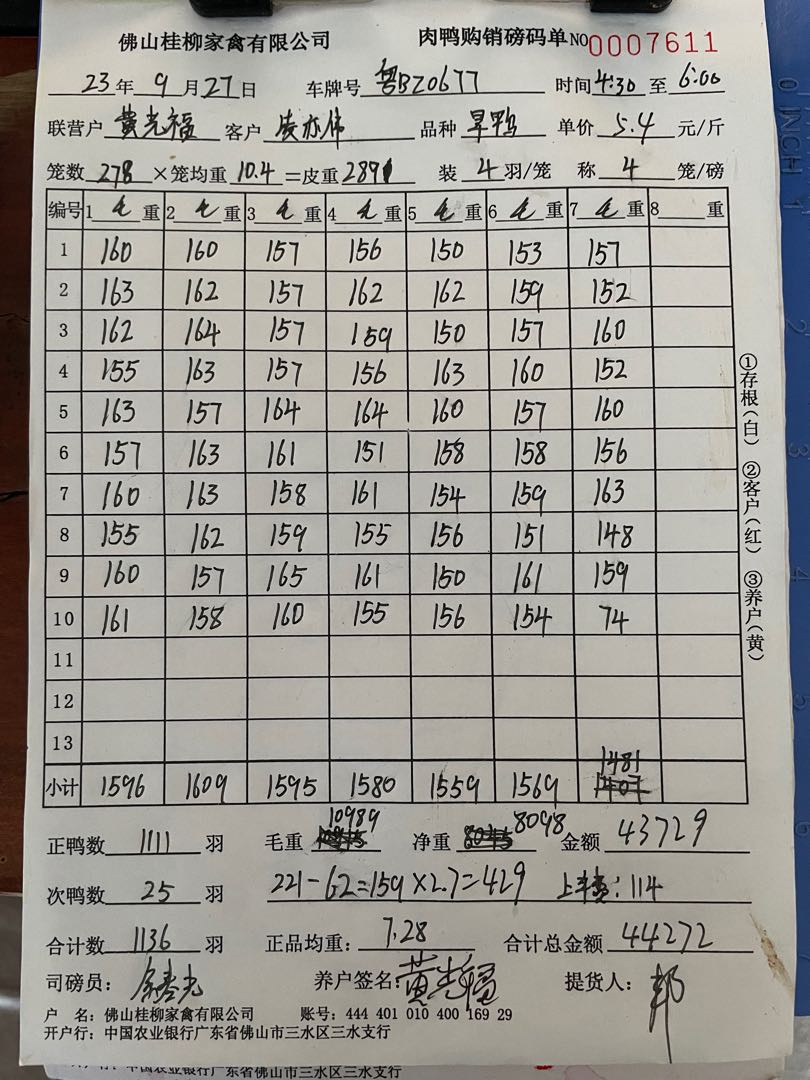 佛山桂柳家禽有限公司 肉鸭购销磅码单 NO 0007611
23年 9月27日 车牌号 粤BZ0677 时间4:30至6:00
联营户 黄光福 客户 凌亦伟 品种 旱鸭 单价 5.4 元/斤
笼数 278 ×笼均重 10.4 =皮重 2891 装 4 羽/笼 称 4 笼/磅
编号 1 毛 重 2 毛 重 3 毛 重 4 毛 重 5 毛 重 6 毛 重 7 毛 重 8 重
1 160 160 157 156 150 153 157
2 163 162 157 162 162 159 152
3 162 164 157 159 150 157 160
4 155 163 157 156 163 160 152
5 163 157 164 164 160 157 160
6 157 163 161 151 158 158 156
7 160 163 158 161 154 159 163
8 155 162 159 155 156 151 148
9 160 157 165 161 150 161 159
10 161 158 160 155 156 154 74
11
12
13
小计 1596 1609 1595 1580 1559 1569 1481
①存根(白) ②客户(红) ③养户(黄)
正鸭数 1111 羽 毛重 10989 净重 8098 金额 43729
次鸭数 25 羽 221-62=159×2.7=429 : 114
合计数 1136 羽 正品均重: 7.28 合计总金额 44272
司磅员: 养户签名: 黄光福 提货人: 邦
户 名: 佛山桂柳家禽有限公司 账号: 444 401 010 400 169 29
开户行: 中国农业银行广东省佛山市三水区三水支行
开户行: 中国农业银行广东省佛山市三水区三水支行